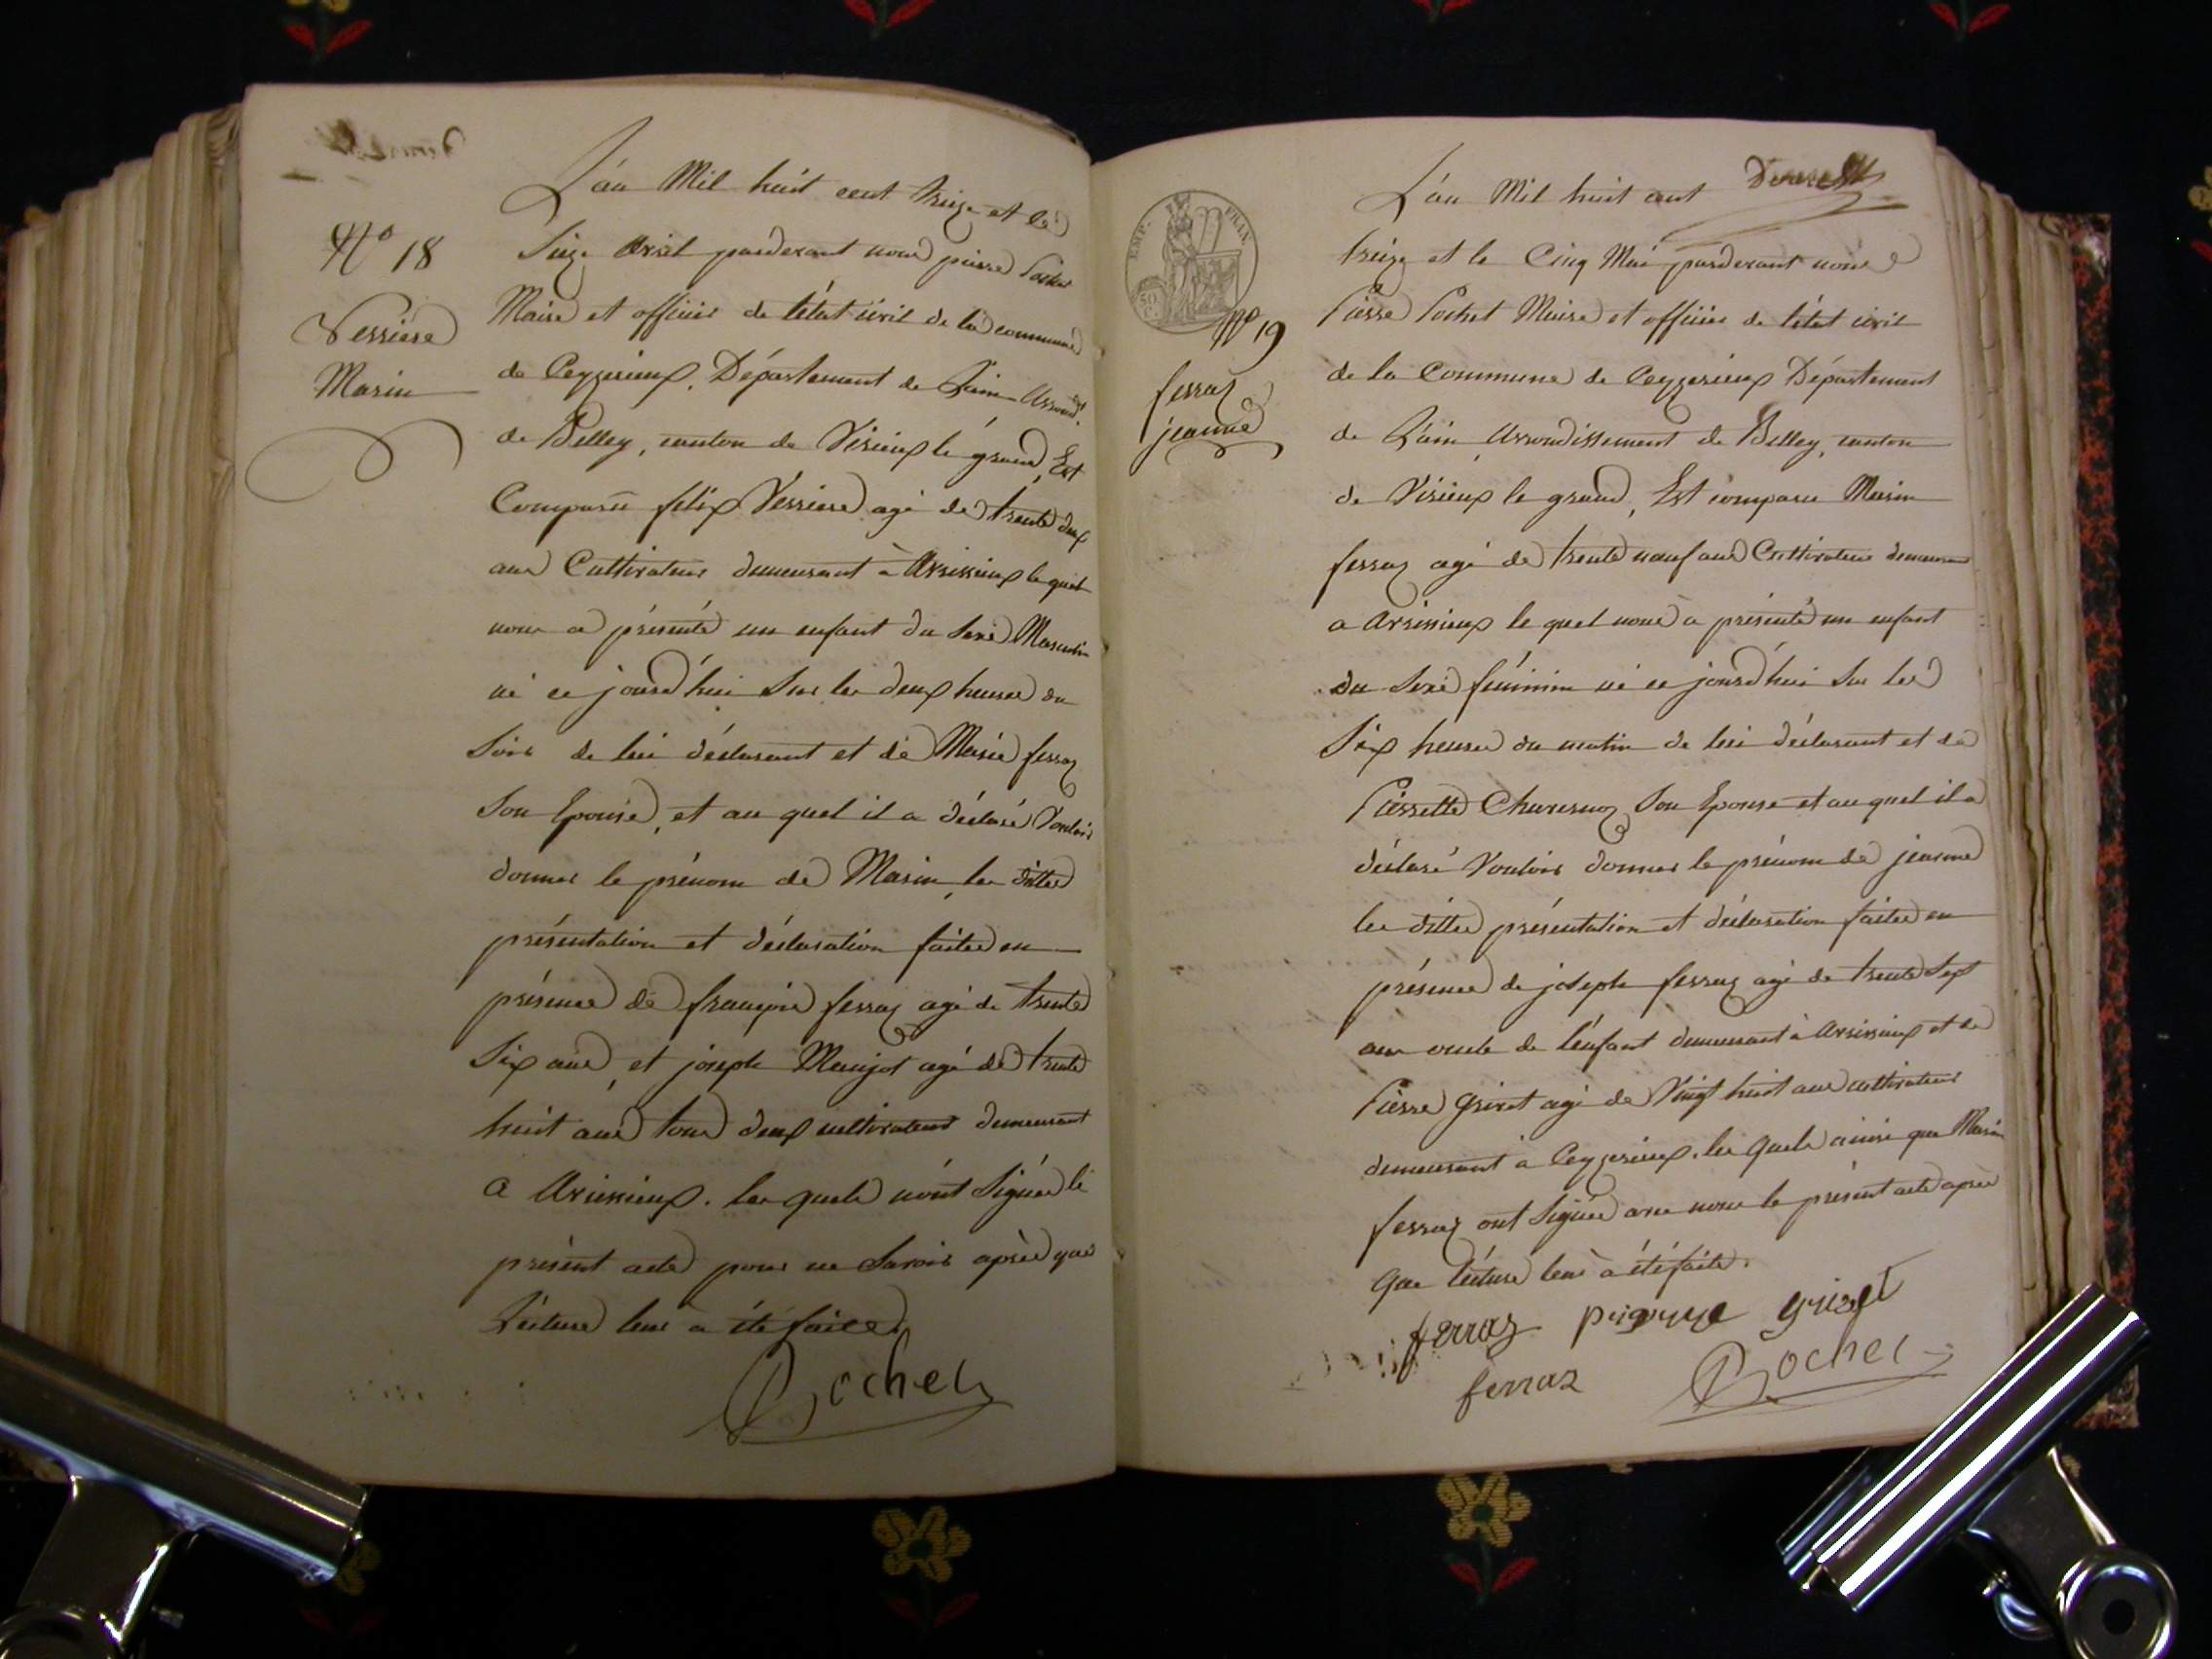 N° 18
Verriere
Marin
L'an Mil huit cent treize et le
Seize Avril pardevant nous pierre Pochet
Maire et officier de l'état civil de la commune
de Ceyzerieux, Département de L'ain Arrond.t
de Belley, canton de Virieux le grand, Est
Comparu felix Verriere agé de trente deux
ans Cultivateur demeurant à Avrissieux le quel
nous a présenté un enfant du Sexe Masculin
né ce jourd'hui Sur les deux heures du
Soir de lui déclarant et de Marie ferraz
Son Epouse, et au quel il a déclaré Vouloir
donner le prénom de Marin, les dittes
présentation et déclaration faites en
présence de françois ferraz agé de trente
Six ans, et joseph Maujot agé de trente
huit ans tous deux cultivateurs demeurant
a Avrissieux. les quels n'ont Signés le
présent acte pour ne Savoir après que
Lecture leur a été faite.
Pochet
EMP. FRAN.
50
N° 19
ferraz
jeanne
L'an Mil huit cent
treize et le Cinq Mai pardevant nous
Pierre Pochet Maire et officier de l'état civil
de la Commune de Ceyzerieux Département
de L'ain, Arrondissement de Belley, canton
de Virieux le grand, Est comparu Marin
ferraz agé de trente neuf ans Cultivateur demeurant
a Avrissieux le quel nous a présenté un enfant
du Sexe féminin né ce jourd'hui Sur les
Six heures du matin de lui déclarant et de
Pierrette Charvraz Son Epouse et au quel il a
déclaré Vouloir donner le prénom de jeanne
les dittes présentation et déclaration faites en
présence de joseph ferraz agé de trente Sept
ans oncle de l'enfant demeurant à Avrissieux et de
Pierre Grivet agé de Vingt huit ans cultivateur
demeurant à Ceyzerieux. les quels ainsi que Marin
ferraz ont Signés avec nous le présent acte après
que lecture leur a été faite.
ferraz Grivet
ferraz Pochet